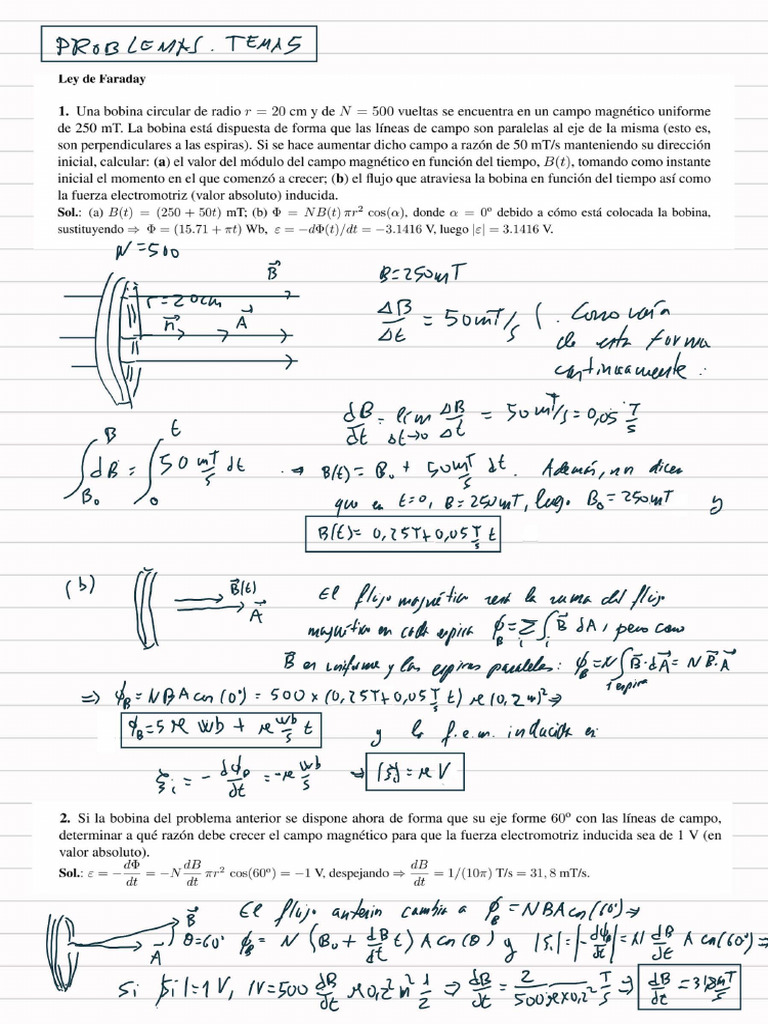 PROBLEMAS. TEMA 5
Ley de Faraday
1. Una bobina circular de radio r = 20 cm y de N = 500 vueltas se encuentra en un campo magnético uniforme
de 250 mT. La bobina está dispuesta de forma que las líneas de campo son paralelas al eje de la misma (esto es,
son perpendiculares a las espiras). Si se hace aumentar dicho campo a razón de 50 mT/s manteniendo su dirección
inicial, calcular: (a) el valor del módulo del campo magnético en función del tiempo, B(t), tomando como instante
inicial el momento en el que comenzó a crecer; (b) el flujo que atraviesa la bobina en función del tiempo así como
la fuerza electromotriz (valor absoluto) inducida.
Sol.: (a) B(t) = (250 + 50t) mT; (b) Φ = NB(t) πr² cos(α), donde α = 0º debido a cómo está colocada la bobina,
sustituyendo ⇒ Φ = (15.71 + πt) Wb, ε = −dΦ(t)/dt = −3.1416 V, luego |ε| = 3.1416 V.
N = 500
B⃗ B = 250mT
r = 20cm
n⃗ A⃗ ΔB/Δt = 50mT/s (. Como varía
de esta forma
continuamente :
dB/dt = lim Δt→0 ΔB/Δt = 50 mT/s = 0,05 T/s
∫_{B₀}^{B} dB = ∫_{0}^{t} 50 mT/s dt → B(t) = B₀ + 50 mT/s dt. Además, nos dicen
que en t=0, B = 250mT, luego B₀ = 250mT y
B(t) = 0,25T + 0,05 T/s t
(b) B⃗(t) A⃗ El flujo magnético será la suma del flujo
magnético en cada espira ϕ_B = Σ_i ∫_i B⃗ dA, pero como
B⃗ es uniforme y las espiras paralelas: ϕ_B = N ∫_{1 espira} B⃗·dA⃗ = N B⃗·A⃗
⇒ ϕ_B = NBA cos(0º) = 500 × (0,25T + 0,05 T/s t) π (0,2 m)² ⇒
ϕ_B = 5π Wb + π Wb/s t y la f.e.m. inducida es:
ξ_i = − dϕ_B/dt = −π Wb/s ⇒ |ξ_i| = π V
2. Si la bobina del problema anterior se dispone ahora de forma que su eje forme 60º con las líneas de campo,
determinar a qué razón debe crecer el campo magnético para que la fuerza electromotriz inducida sea de 1 V (en
valor absoluto).
Sol.: ε = −dΦ/dt = −N dB/dt πr² cos(60º) = −1 V, despejando ⇒ dB/dt = 1/(10π) T/s = 31,8 mT/s.
B⃗ El flujo anterior cambia a ϕ_B = NBA cos(60º) ⇒
A⃗ θ=60º ϕ_B = N (B₀ + dB/dt t) A cos(θ) y |ξ_i| = |−dϕ_B/dt| = N dB/dt A cos(60º) ⇒
Si |ξ_i| = 1V, 1V = 500 dB/dt π 0,2² m² 1/2 ⇒ dB/dt = 2/(500π × 0,2²) T/s ⇒ dB/dt = 31,8 mT/s